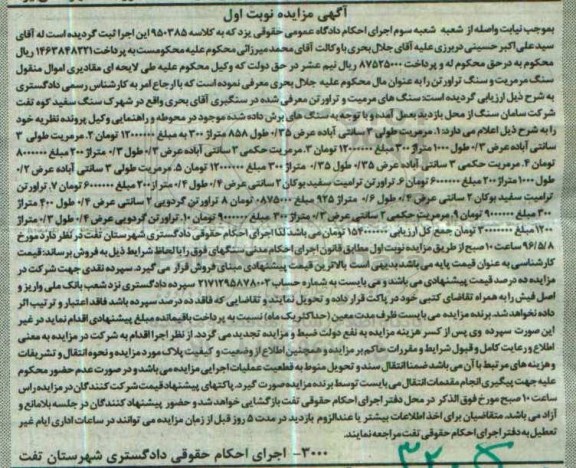 آگهی مزایده نوبت اول
بموجب نیابت واصله از شعبه شعبه سوم اجرای احکام دادگاه عمومی حقوقی یزد که به کلاسه ۹۵۰۳۸۵ این اجرا ثبت گردیده است له آقای
سید علی اکبر حسینی دربرزی علیه آقای جلال بحری با وکالت آقای محمد میرزائی محکوم علیه محکومست به پرداخت ۱۴۶۳۸۴۸۲۲۱ ریال
محکوم به در حق محکوم له و پرداخت ۸۷۵۲۵۰۰۰ ریال نیم عشر در حق دولت که وکیل محکوم علیه طی لایحه ای مقادیری اموال منقول
سنگ مرمریت و سنگ تراورتن را به عنوان مال محکوم علیه جلال بحری معرفی نموده است که با ارجاع امر به کارشناس رسمی دادگستری
به شرح ذیل ارزیابی گردیده است: سنگ های مرمیت و تراورتن معرفی شده در سنگبری آقای بحری واقع در شهرک سنگ سفید کوه تفت
شرکت سامان سنگ از محل بازدید بعمل آمده و با توجه به سنگ های برش داده شده موجود در محوطه و راهنمایی وکیل پرونده نظریه خود
را به شرح ذیل اعلام می دارد: ۱. مرمریت طولی ۳ سانتی آباده عرض ۰/۳۵ طول ۸۵۸ متراژ ۳۰۰ به مبلغ ۱۲۰۰۰۰۰۰ تومان ۲. مرمریت طولی ۳
سانتی آباده عرض ۰/۳ طول ۱۰۰۰ متراژ ۳۰۰ مبلغ ۱۲۰۰۰۰۰۰ تومان ۳. مرمریت حکمی ۳ سانتی آباده عرض ۰/۳ متراژ ۲۰۰ مبلغ ۸۰۰۰۰۰۰
تومان ۴. مرمریت حکمی ۳ سانتی آباده عرض ۰/۳۵ طول ۰/۳۵ متراژ ۳۰۰ مبلغ ۱۲۰۰۰۰۰۰ تومان ۵. مرمریت طولی ۳ سانتی آباده عرض ۰/۲
طول ۱۰۰۰ متراژ ۲۰۰ مبلغ ۶۰۰۰۰۰۰ تومان ۶. تراورتن ترامیت سفید بوکان ۲ سانتی عرض ۰/۴ طول ۰/۴ متراژ ۲۰۰ مبلغ ۶۰۰۰۰۰۰ تومان ۷. تراورتن
ترامیت سفید بوکان ۲ سانتی عرض ۰/۴ طول ۰/۶ متراژ ۹۲۵ مبلغ ۰۸۷۵۰۰۰ تومان ۸ تراورتن گردویی ۲ سانتی عرض ۰/۴ طول ۴۰۰ متراژ
۳۰۰ مبلغ ۹۰۰۰۰۰۰ تومان ۹. مرمریت حکمی ۲ سانتی عرض ۰/۳ متراژ ۳۰۰ مبلغ ۹۰۰۰۰۰۰ تومان ۱۰. تراورتن گردویی عرض ۰/۴ طول ۰/۳ متراژ
۱۲۰۰ مبلغ ۳۰۰۰۰۰۰۰ تومان جمع کل ارزیابی ۱۵۴۰۰۰۰۰۰ تومان می باشد لذا اجرای احکام حقوقی دادگستری شهرستان تفت در نظر دارد مورخ
۹۶/۵/۸ ساعت ۱۰ صبح از طریق مزایده نوبت اول مطابق قانون اجرای احکام مدنی سنگهای فوق را با لحاظ شرایط ذیل به فروش برساند: قیمت
کارشناسی به عنوان قیمت پایه می باشد بدیهی است بالاترین قیمت پیشنهادی مبنای فروش قرار می گیرد. سپرده نقدی جهت شرکت در
مزایده ده درصد قیمت پیشنهادی می باشد و می بایست به شماره حساب ۲۱۷۱۲۹۵۸۷۸۰۰۲ سپرده دادگستری نزد شعب بانک ملی واریز و
اصل فیش را به همراه تقاضای کتبی خود در پاکت قرار داده و تحویل نمایند و تقاضایی که فاقد ده درصد سپرده باشد فاقد اعتبار و ترتیب اثر
داده نخواهد شد. برنده مزایده می بایست ظرف مدت معین (حداکثر یک ماه) نسبت به پرداخت باقیمانده مبلغ پیشنهادی اقدام نماید در غیر
این صورت سپرده وی پس از کسر هزینه مزایده به نفع دولت ضبط و مزایده تجدید می گردد. از نظر اجرا اقدام به شرکت در مزایده به معنی
اطلاع و رعایت کامل و قبول شرایط و مقررات حاکم بر مزایده و همچنین اطلاع از وضعیت و کیفیت پلاک مورد مزایده و نحوه انتقال و تشریفات
و هزینه های مرتبط با آن می باشد ضمنا انتقال سند و تحویل منوط به قطعیت عملیات اجرایی مزایده می باشد و در صورت عدم حضور محکوم
علیه جهت پیگیری انجام مقدمات انتقال می بایست توسط برنده مزایده صورت گیرد. پاکتهای پیشنهادی قیمت شرکت کنندگان در مزایده راس
ساعت ۱۰ صبح مورخ فوق الذکر در محل دفتر اجرای احکام حقوقی تفت بازگشایی خواهد شد و حضور پیشنهاد کنندگان در جلسه بلامانع و
آزاد می باشد. متقاضیان برای اخذ اطلاعات بیشتر یا عندالزوم بازدید در مدت ۵ روز قبل از زمان مزایده می توانند در ساعات اداری ایام غیر
تعطیل به دفتر اجرای احکام حقوقی تفت مراجعه نمایند.
۳۰۰۰- اجرای احکام حقوقی دادگستری شهرستان تفت